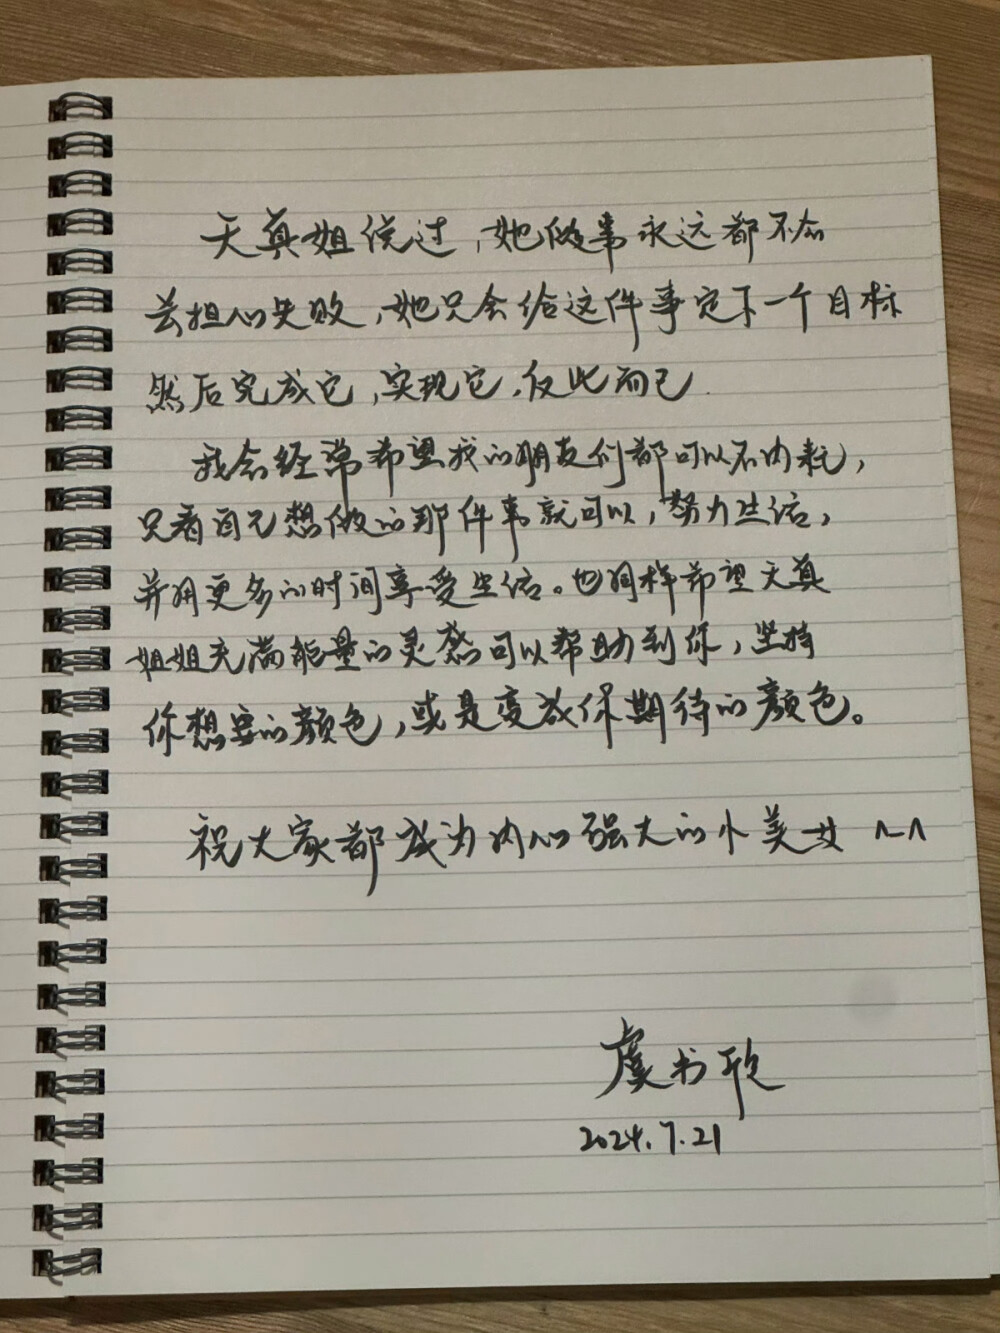 天真姐说过，她做事永远都不会
去担心失败，她只会给这件事定下一个目标
然后完成它，实现它，仅此而已.
我会经常希望我的朋友们都可以不内耗，
只看自己想做的那件事就可以，努力生活，
并用更多的时间享受生活。也同样希望天真
姐姐充满能量的灵感可以帮助到你，坚持
你想要的颜色，或是变成你期待的颜色。
祝大家都成为内心强大的小美女 ^^
虞书欣
2024.7.21